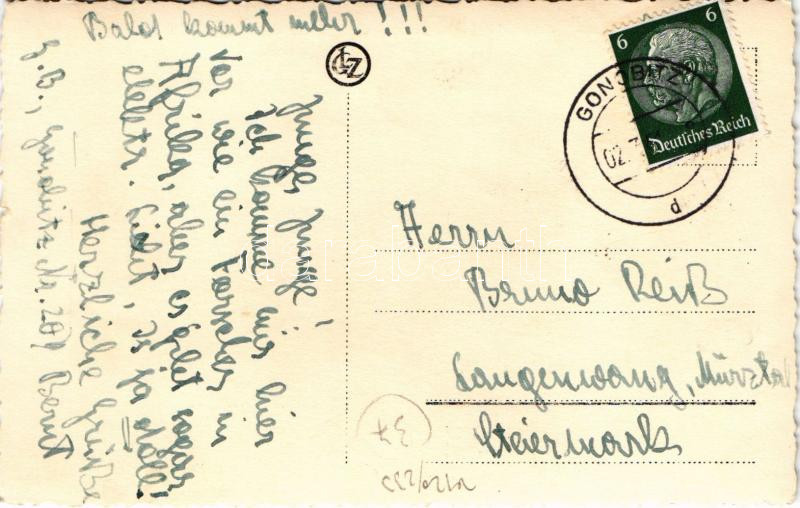 Bald kommt mehr !!!
Junge, Junge!
Ich komme mir hier
vor wie ein Forscher in
Afrika, aber es gibt sogar
elektr. Licht, is ja doll!
Herzliche Grüße
Bernt
G.B., Gonobitz Nr. 207
CLZ
6 6
Deutsches Reich
GONOBITZ
02.7.
d
Herrn
Bruno Reiß
Langenwang, Mürztal
Steiermark
34
darabanth